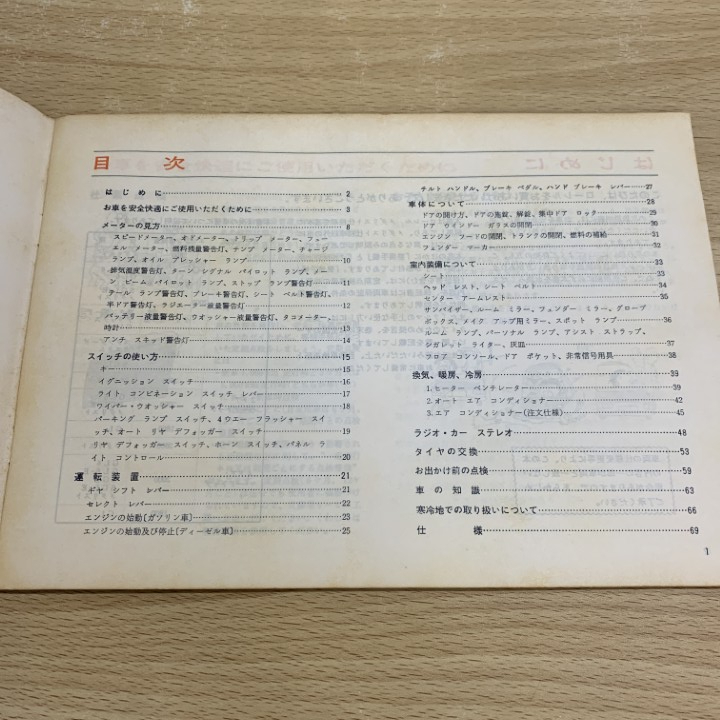 目 次
はじめに 2
お車を安全快適にご使用いただくために 3
メーターの見方 8
スピードメーター、オドメーター、トリップ メーター、フュー
エル メーター、燃料残量警告灯、テンプ メーター、チャージ
ランプ、オイル プレッシャー ランプ 10
排気温度警告灯、ターン シグナル パイロット ランプ、メー
ン ビーム パイロット ランプ、ストップ ランプ警告灯 11
テール ランプ警告灯、ブレーキ警告灯、シート ベルト警告灯、
半ドア警告灯、ラジエーター液量警告灯 12
バッテリー液量警告灯、ウオッシャー液量警告灯、タコメーター、
時計 13
アンチ スキッド警告灯 14
スイッチの使い方 15
キー 15
イグニッション スイッチ 16
ライト コンビネーション スイッチ レバー 17
ワイパー・ウオッシャー スイッチ 18
パーキング ランプ スイッチ、4ウエー フラッシャー スイ
ッチ、オート リヤ デフォッガー スイッチ 19
リヤ デフォッガー スイッチ、ホーン スイッチ、パネル ラ
イト コントロール 20
運転装置 21
ギヤ シフト レバー 21
セレクト レバー 22
エンジンの始動〔ガソリン車〕 23
エンジンの始動及び停止〔ディーゼル車〕 25
チルト ハンドル、ブレーキ ペダル、ハンド ブレーキ レバー 27
車体について 28
ドアの開け方、ドアの施錠、解錠、集中ドア ロック 29
ドア ウインドー ガラスの開閉 30
エンジン フードの開閉、トランクの開閉、燃料の補給 31
フェンダー マーカー 32
室内装備について 33
シート 33
ヘッド レスト、シート ベルト 34
センター アームレスト 35
サンバイザー、ルーム ミラー、フェンダー ミラー、グローブ
ボックス、メイク アップ用ミラー、スポット ランプ 36
ルーム ランプ、パーソナル ランプ、アシスト ストラップ、
シガレット ライター、灰皿 37
フロア コンソール、ドア ポケット、非常信号用具 38
換気、暖房、冷房 39
1.ヒーター ベンチレーター 39
2.オート エア コンディショナー 42
3.エア コンディショナー(注文仕様) 45
ラジオ・カー ステレオ 48
タイヤの交換 53
お出かけ前の点検 59
車の知識 63
寒冷地での取り扱いについて 66
仕 様 69
1